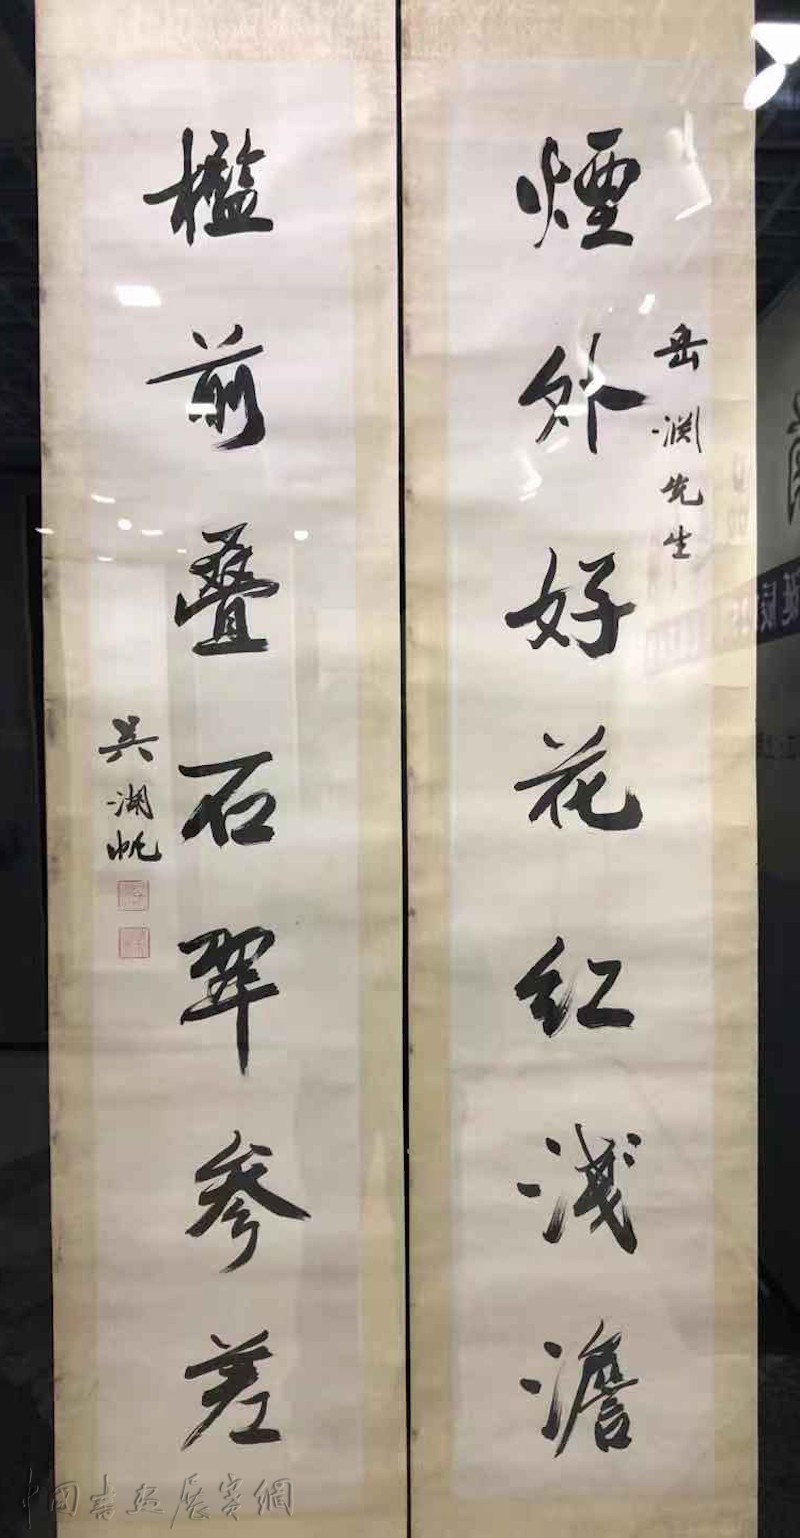 煙外好花紅淺澹
岳淵先生
檻前叠石翠參差
吴湖帆
中国書画展賽網